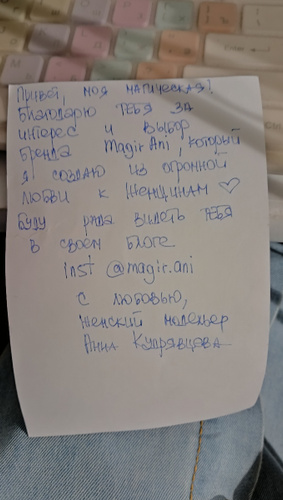 Привет, моя магическая!
Благодарю тебя за
интерес и выбор
бренда Magir Ani, который
я создаю из огромной
любви к Женщинам ♡
Буду рада видеть тебя
в своем блоге
inst @magir.ani
С любовью,
женский модельер
Анна Кудрявцева